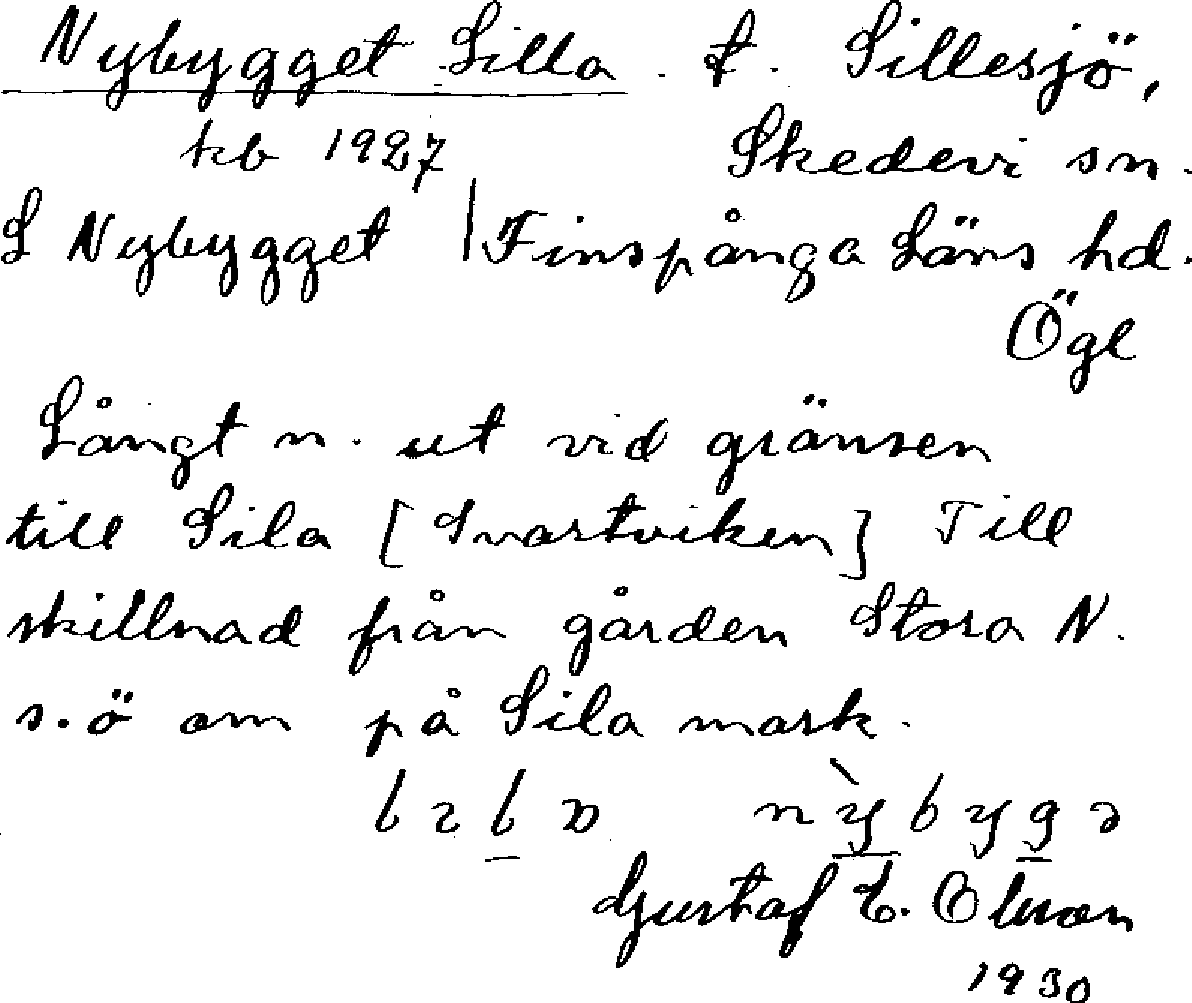 Nybygget Lilla . t. Sillesjö,
kb 1927 Skedevi sn.
L Nybygget | Finspånga Läns hd.
Ögl
Långt n. ut vid gränsen
till Sila [Svartviken] Till
skillnad från gården Stora N.
s.ö om på Sila mark.
Gustaf
1930